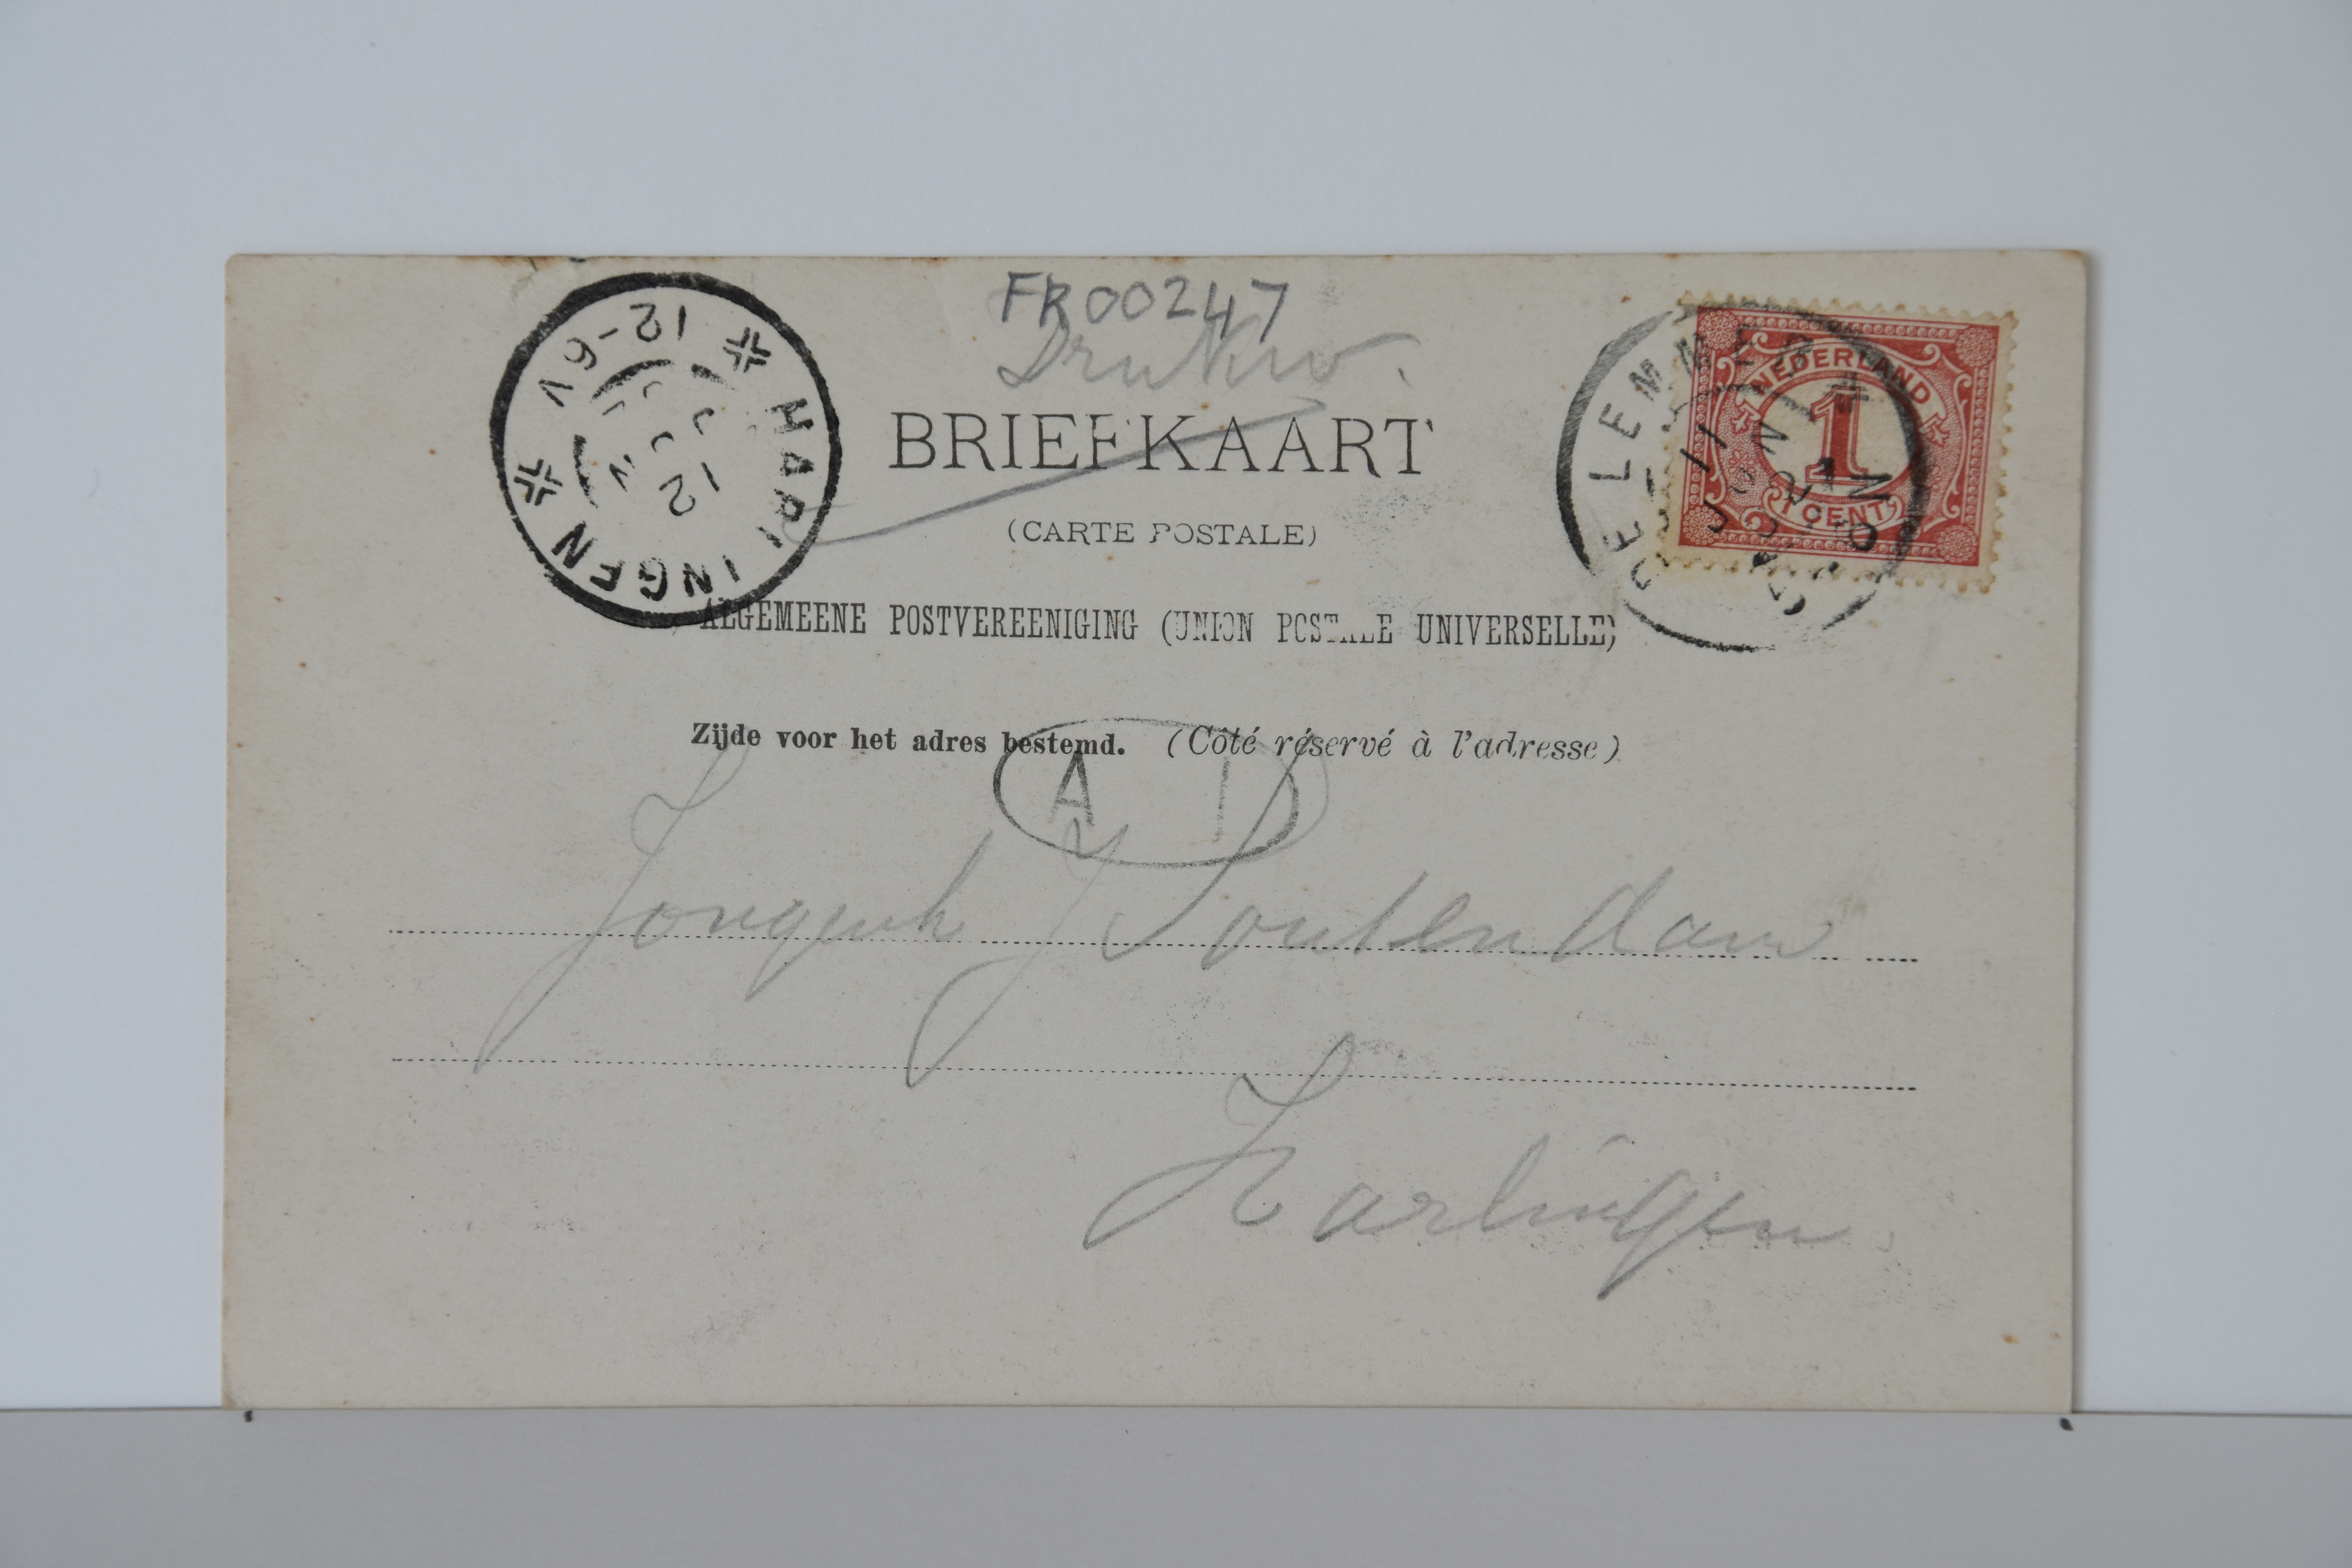 FR00247
Drukw.
BRIEFKAART
(CARTE POSTALE)
ALGEMEENE POSTVEREENIGING (UNION POSTALE UNIVERSELLE)
Zijde voor het adres bestemd. (Côté réservé à l'adresse)
HARLINGEN
12-6V
DE LEMMER
NEDERLAND
1
1 CENT
A
Jongeh J Soutendam
Harlingen